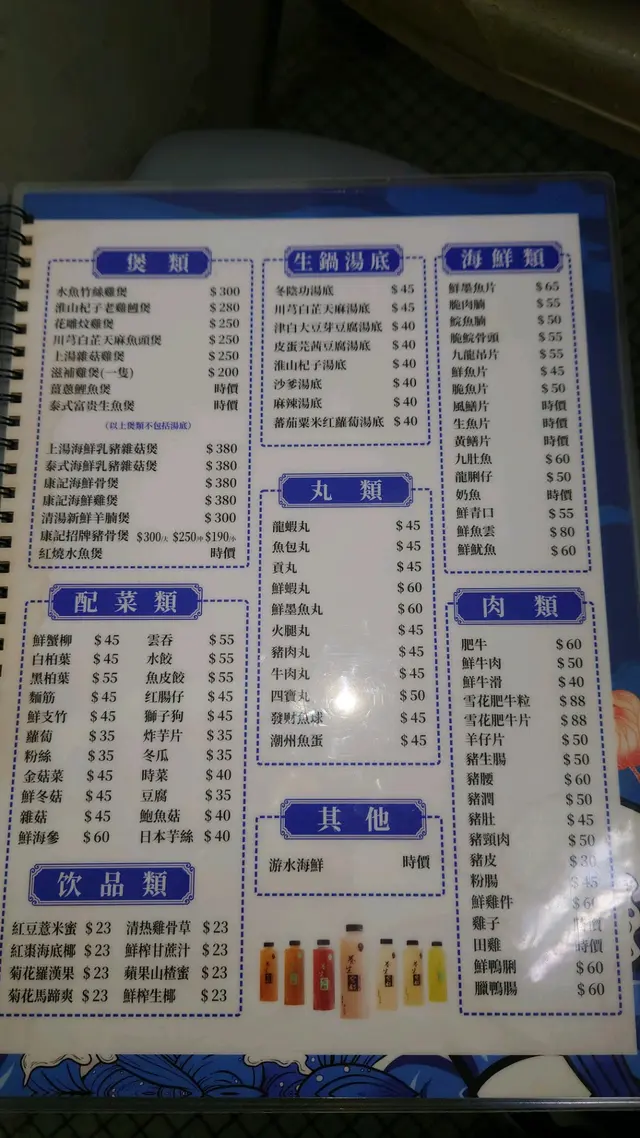 煲類
水魚竹絲雞煲 $300
淮山杞子老雞𩠌煲 $280
花雕炆雞煲 $250
川芎白芷天麻魚頭煲 $250
上湯雜菇雞煲 $250
滋補雞煲(一隻) $200
薑蔥鯉魚煲 時價
泰式富贵生魚煲 時價
(以上煲類不包括湯底)
上湯海鮮乳豬雜菇煲 $380
泰式海鮮乳豬雜菇煲 $380
康記海鮮骨煲 $380
康記海鮮雞煲 $380
清湯新鮮羊腩煲 $300
康記招牌豬骨煲 $300/大 $250/中 $190/小
紅燒水魚煲 時價
配菜類
鮮蟹柳 $45 雲吞 $55
白柏葉 $45 水餃 $55
黑柏葉 $55 魚皮餃 $55
麵筋 $45 红腸仔 $45
鮮支竹 $45 獅子狗 $45
蘿蔔 $35 炸芋片 $35
粉絲 $35 冬瓜 $35
金菇菜 $45 時菜 $40
鮮冬菇 $45 豆腐 $35
雜菇 $45 鮑魚菇 $40
鮮海參 $60 日本芋絲 $40
饮品類
紅豆薏米蜜 $23 清热雞骨草 $23
紅棗海底椰 $23 鮮榨甘蔗汁 $23
菊花羅漢果 $23 蘋果山楂蜜 $23
菊花馬蹄爽 $23 鮮榨生椰 $23
生鍋湯底
冬陰功湯底 $45
川芎白芷天麻湯底 $45
津白大豆芽豆腐湯底 $40
皮蛋芫茜豆腐湯底 $40
淮山杞子湯底 $40
沙爹湯底 $40
麻辣湯底 $40
蕃茄粟米红蘿蔔湯底 $40
丸類
龍蝦丸 $45
魚包丸 $45
貢丸 $45
鮮蝦丸 $60
鮮墨魚丸 $60
火腿丸 $45
豬肉丸 $45
牛肉丸 $45
四寶丸 $50
發財魚球 $45
潮州魚蛋 $45
其他
游水海鮮 時價
海鮮類
鮮墨魚片 $65
脆肉腩 $55
鯇魚腩 $50
脆鯇骨頭 $55
九龍吊片 $55
鮮魚片 $45
脆魚片 $50
風鱔片 時價
生魚片 時價
黃鱔片 時價
九肚魚 $60
龍脷仔 $50
奶魚 時價
鮮青口 $55
鮮魚雲 $80
鮮魷魚 $60
肉類
肥牛 $60
鮮牛肉 $50
鮮牛滑 $40
雪花肥牛粒 $88
雪花肥牛片 $88
羊仔片 $50
豬生腸 $50
豬腰 $60
豬潤 $50
豬肚 $45
豬頸肉 $50
豬皮 $30
粉腸 $45
鮮雞件 $60
雞子 時價
田雞 時價
鮮鴨脷 $60
臘鴨腸 $60